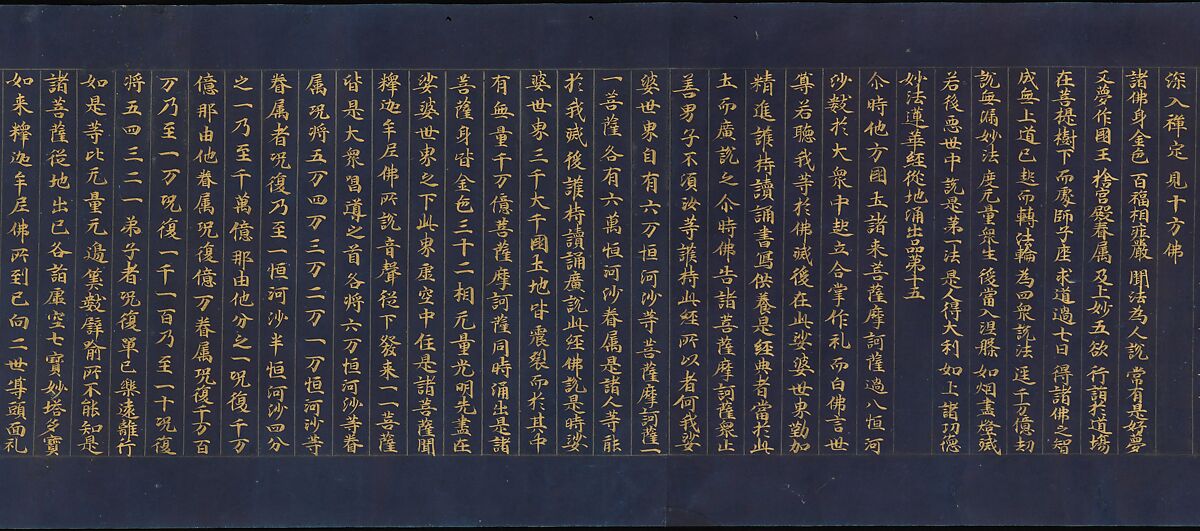 深入禪定見十方佛
諸佛身金色百福相莊嚴聞法為人說常有是好夢
又夢作國王捨宮殿眷属及上妙五欲行詣於道場
在菩提樹下而處師子座求道過七日得諸佛之智
成無上道已起而轉法輪為四衆說法逕千万億劫
說無漏妙法度无量衆生後當入涅槃如烟盡燈滅
若後悪世中說是第一法是人得大利如上諸功徳
妙法蓮華經從地涌出品第十五
尒時他方國玉諸来菩薩摩訶薩過八恒河
沙数於大衆中起立合掌作礼而白佛言世
尊若聴我等於佛滅後在此娑婆世界勤加
精進護持讀誦書寫供養是経典者當於此
土而廣說之尒時佛告諸菩薩摩訶薩衆止
善男子不湏汝等護持此経所以者何我娑
婆世界自有六万恒河沙等菩薩摩訶薩一
一菩薩各有六萬恒河沙眷属是諸人等能
於我滅後護持讀誦廣說此経佛說是時娑
婆世界三千大千國玉地皆震裂而於其中
有無量千万億菩薩摩訶薩同時涌出是諸
菩薩身皆金色三十二相无量光明先盡在
娑婆世界之下此界虚空中住是諸菩薩聞
釋迦牟尼佛所說音聲從下發来一一菩薩
皆是大衆唱導之首各將六万恒河沙等眷
属況將五万四万三万二万一万恒河沙等
眷属者況復乃至一恒河沙半恒河沙四分
之一乃至千萬億那由他分之一況復千万
億那由他眷属況復億万眷属況復千万百
万乃至一万況復一千一百乃至一十況復
将五四三二一弟子者況復單己樂遠離行
如是等比无量无邊筭數辟喻所不能知是
諸菩薩從地出已各詣虚空七寶妙塔多寶
如来釋迦牟尼佛所到已向二世尊頭面礼